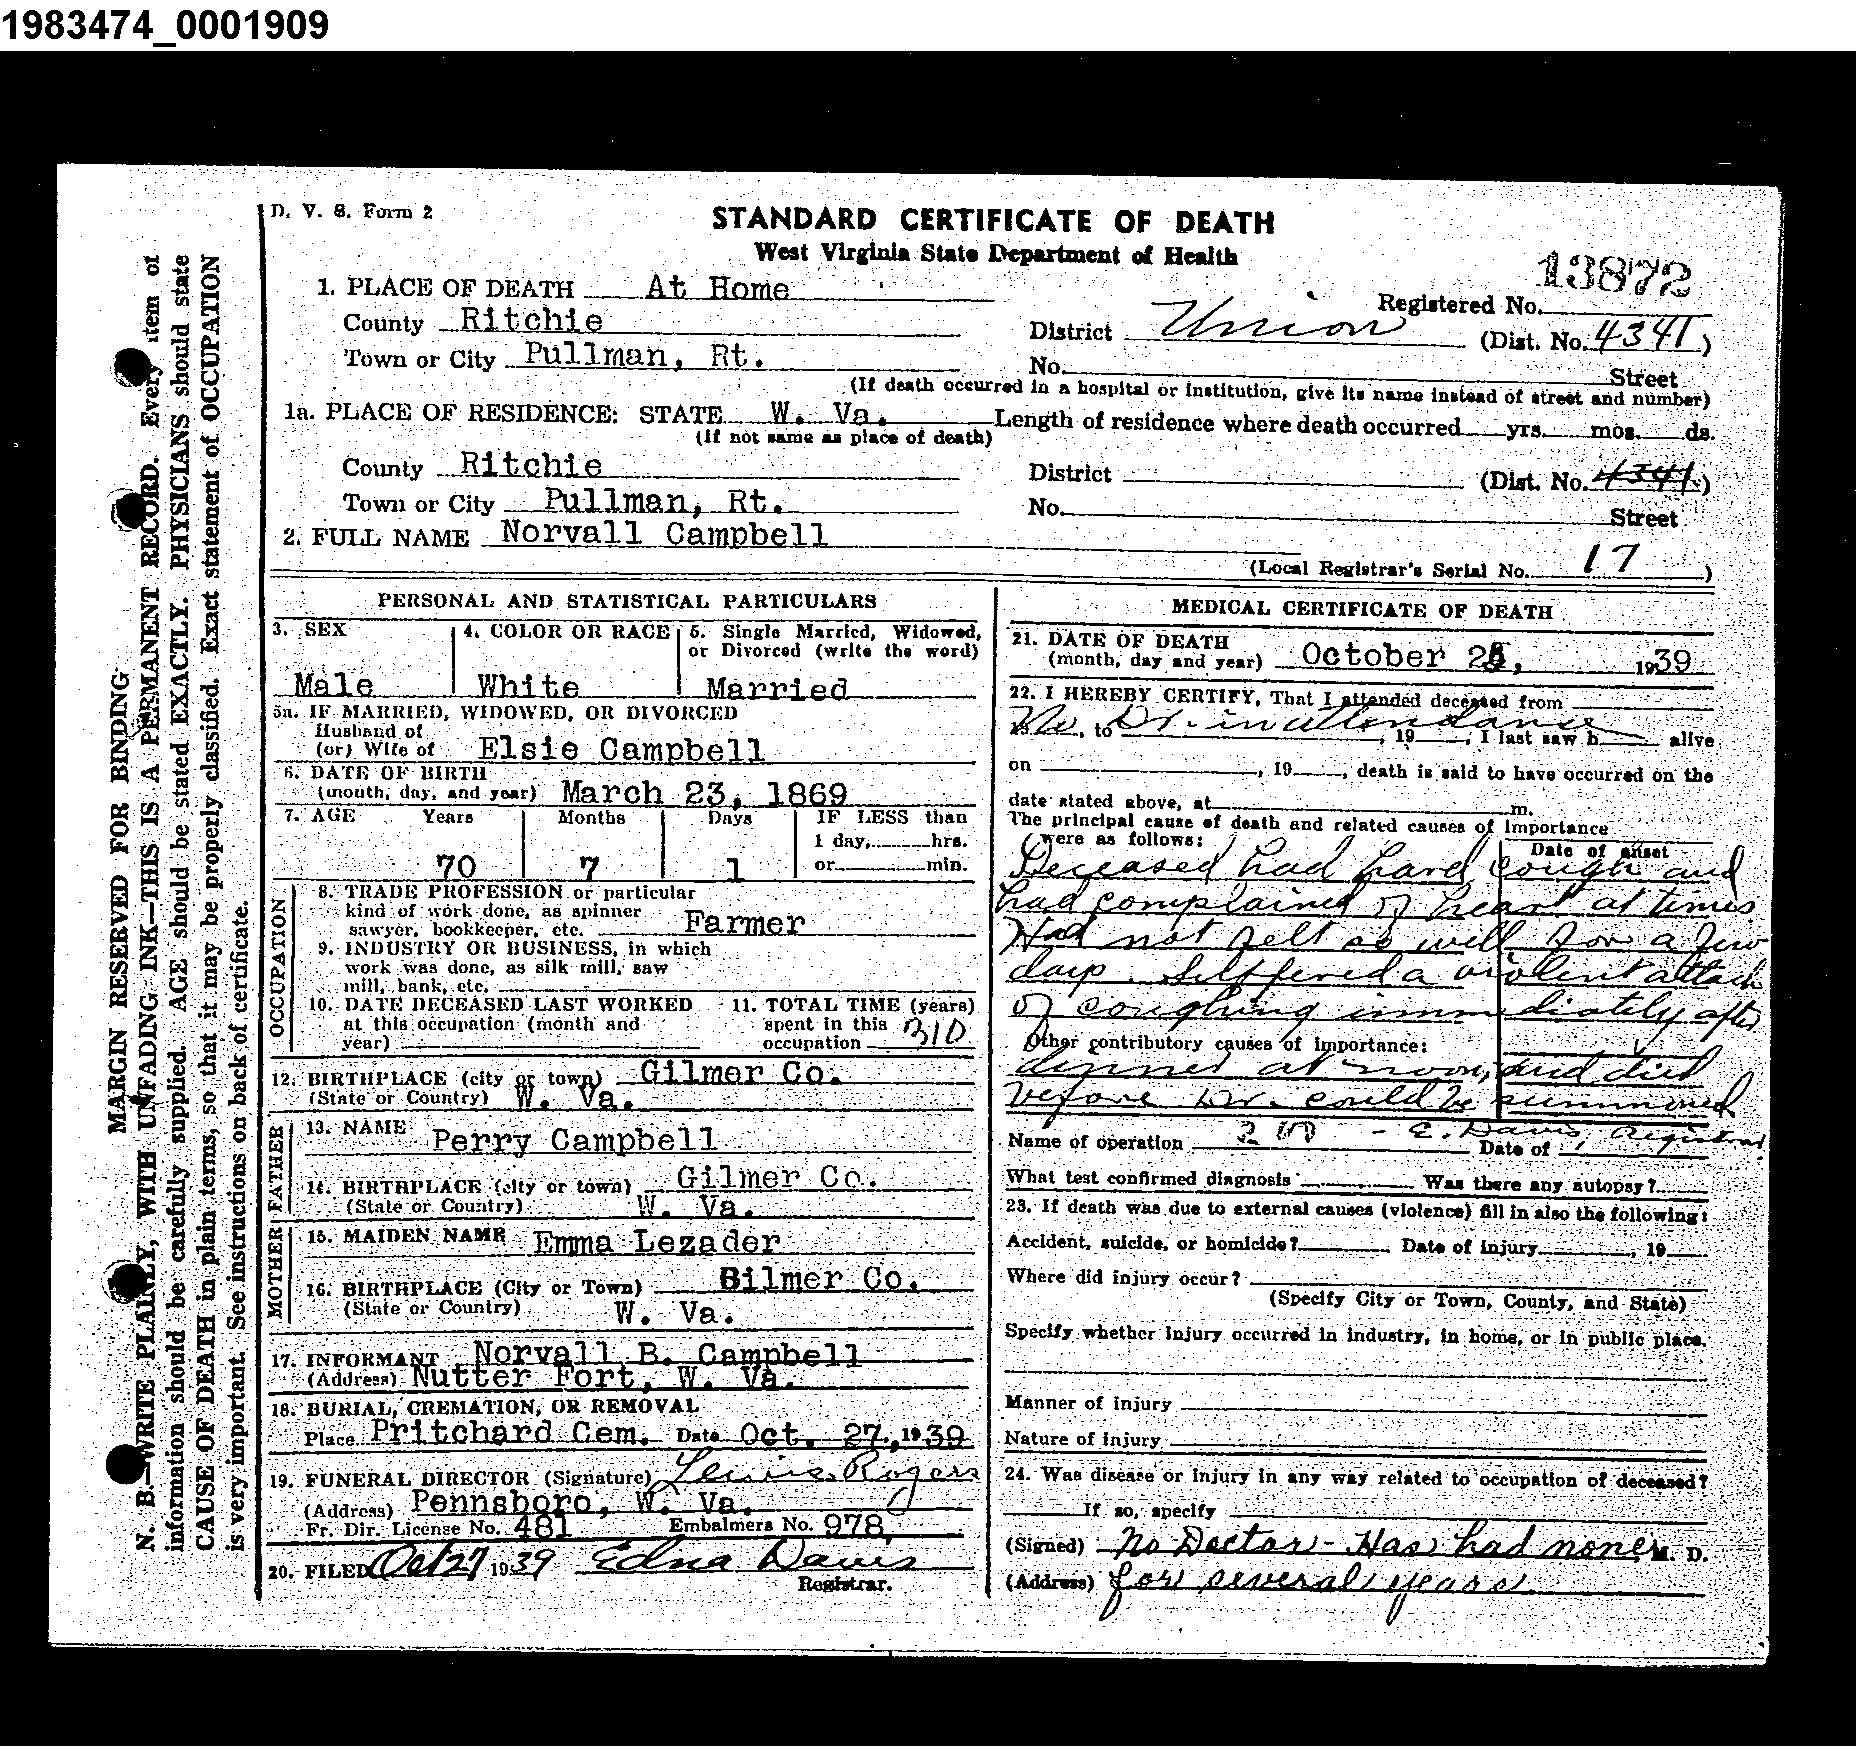 1983474_0001909
D. V. S. Form 2
STANDARD CERTIFICATE OF DEATH
West Virginia State Department of Health
13872
1. PLACE OF DEATH At Home
Registered No.
County Ritchie
District Union (Dist. No. 4341)
Town or City Pullman, Rt.
No. Street
(If death occurred in a hospital or institution, give its name instead of street and number)
1a. PLACE OF RESIDENCE: STATE W. Va. Length of residence where death occurred yrs. mos. ds.
(If not same as place of death)
County Ritchie
District (Dist. No. 4341)
Town or City Pullman, Rt.
No. Street
2. FULL NAME Norvall Campbell
(Local Registrar's Serial No. 17)
PERSONAL AND STATISTICAL PARTICULARS
3. SEX
Male
4. COLOR OR RACE
White
5. Single Married, Widowed,
or Divorced (write the word)
Married
5a. IF MARRIED, WIDOWED, OR DIVORCED
Husband of
(or) Wife of Elsie Campbell
6. DATE OF BIRTH
(month, day, and year) March 23, 1869
7. AGE Years Months Days IF LESS than
1 day, hrs.
70 7 1 or min.
OCCUPATION
8. TRADE PROFESSION or particular
kind of work done, as spinner
sawyer, bookkeeper, etc. Farmer
9. INDUSTRY OR BUSINESS, in which
work was done, as silk mill, saw
mill, bank, etc.
10. DATE DECEASED LAST WORKED
at this occupation (month and
year)
11. TOTAL TIME (years)
spent in this
occupation
12. BIRTHPLACE (city or town) Gilmer Co.
(State or Country) W. Va.
FATHER
13. NAME Perry Campbell
14. BIRTHPLACE (city or town) Gilmer Co.
(State or Country) W. Va.
MOTHER
15. MAIDEN NAME Emma Lezader
16. BIRTHPLACE (City or Town) Gilmer Co.
(State or Country) W. Va.
17. INFORMANT Norvall B. Campbell
(Address) Nutter Fort, W. Va.
18. BURIAL, CREMATION, OR REMOVAL
Place Pritchard Cem. Date Oct. 27, 1939
19. FUNERAL DIRECTOR (Signature) Lewis Rogers
(Address) Pennsboro, W. Va.
Fr. Dir. License No. 481 Embalmers No. 978
20. FILED Oct 27 1939 Edna Davis
Registrar.
MEDICAL CERTIFICATE OF DEATH
21. DATE OF DEATH
(month, day and year) October , 1939
22. I HEREBY CERTIFY, That I attended deceased from
No Dr. in attendance
, to , 19 , I last saw h alive
on , 19 , death is said to have occurred on the
date stated above, at m.
The principal cause of death and related causes of importance
were as follows:
Date of onset
Deceased had hard cough and
had complained of heart at times
Had not felt as well for a few
days. Suffered a violent attack
of coughing immediately after
Other contributory causes of importance:
dinner at noon, and died
before Dr. could be summoned
E. Davis, Registrar
Name of operation Date of
What test confirmed diagnosis Was there any autopsy?
23. If death was due to external causes (violence) fill in also the following:
Accident, suicide, or homicide? Date of injury , 19
Where did injury occur?
(Specify City or Town, County, and State)
Specify whether injury occurred in industry, in home, or in public place.
Manner of injury
Nature of injury
24. Was disease or injury in any way related to occupation of deceased?
If so, specify
(Signed) No Doctor - Has had none M. D.
(Address) for several years
MARGIN RESERVED FOR BINDING
N. B.—WRITE PLAINLY, WITH UNFADING INK—THIS IS A PERMANENT RECORD. Every item of
information should be carefully supplied. AGE should be stated EXACTLY. PHYSICIANS should state
CAUSE OF DEATH in plain terms, so that it may be properly classified. Exact statement of OCCUPATION
is very important. See instructions on back of certificate.